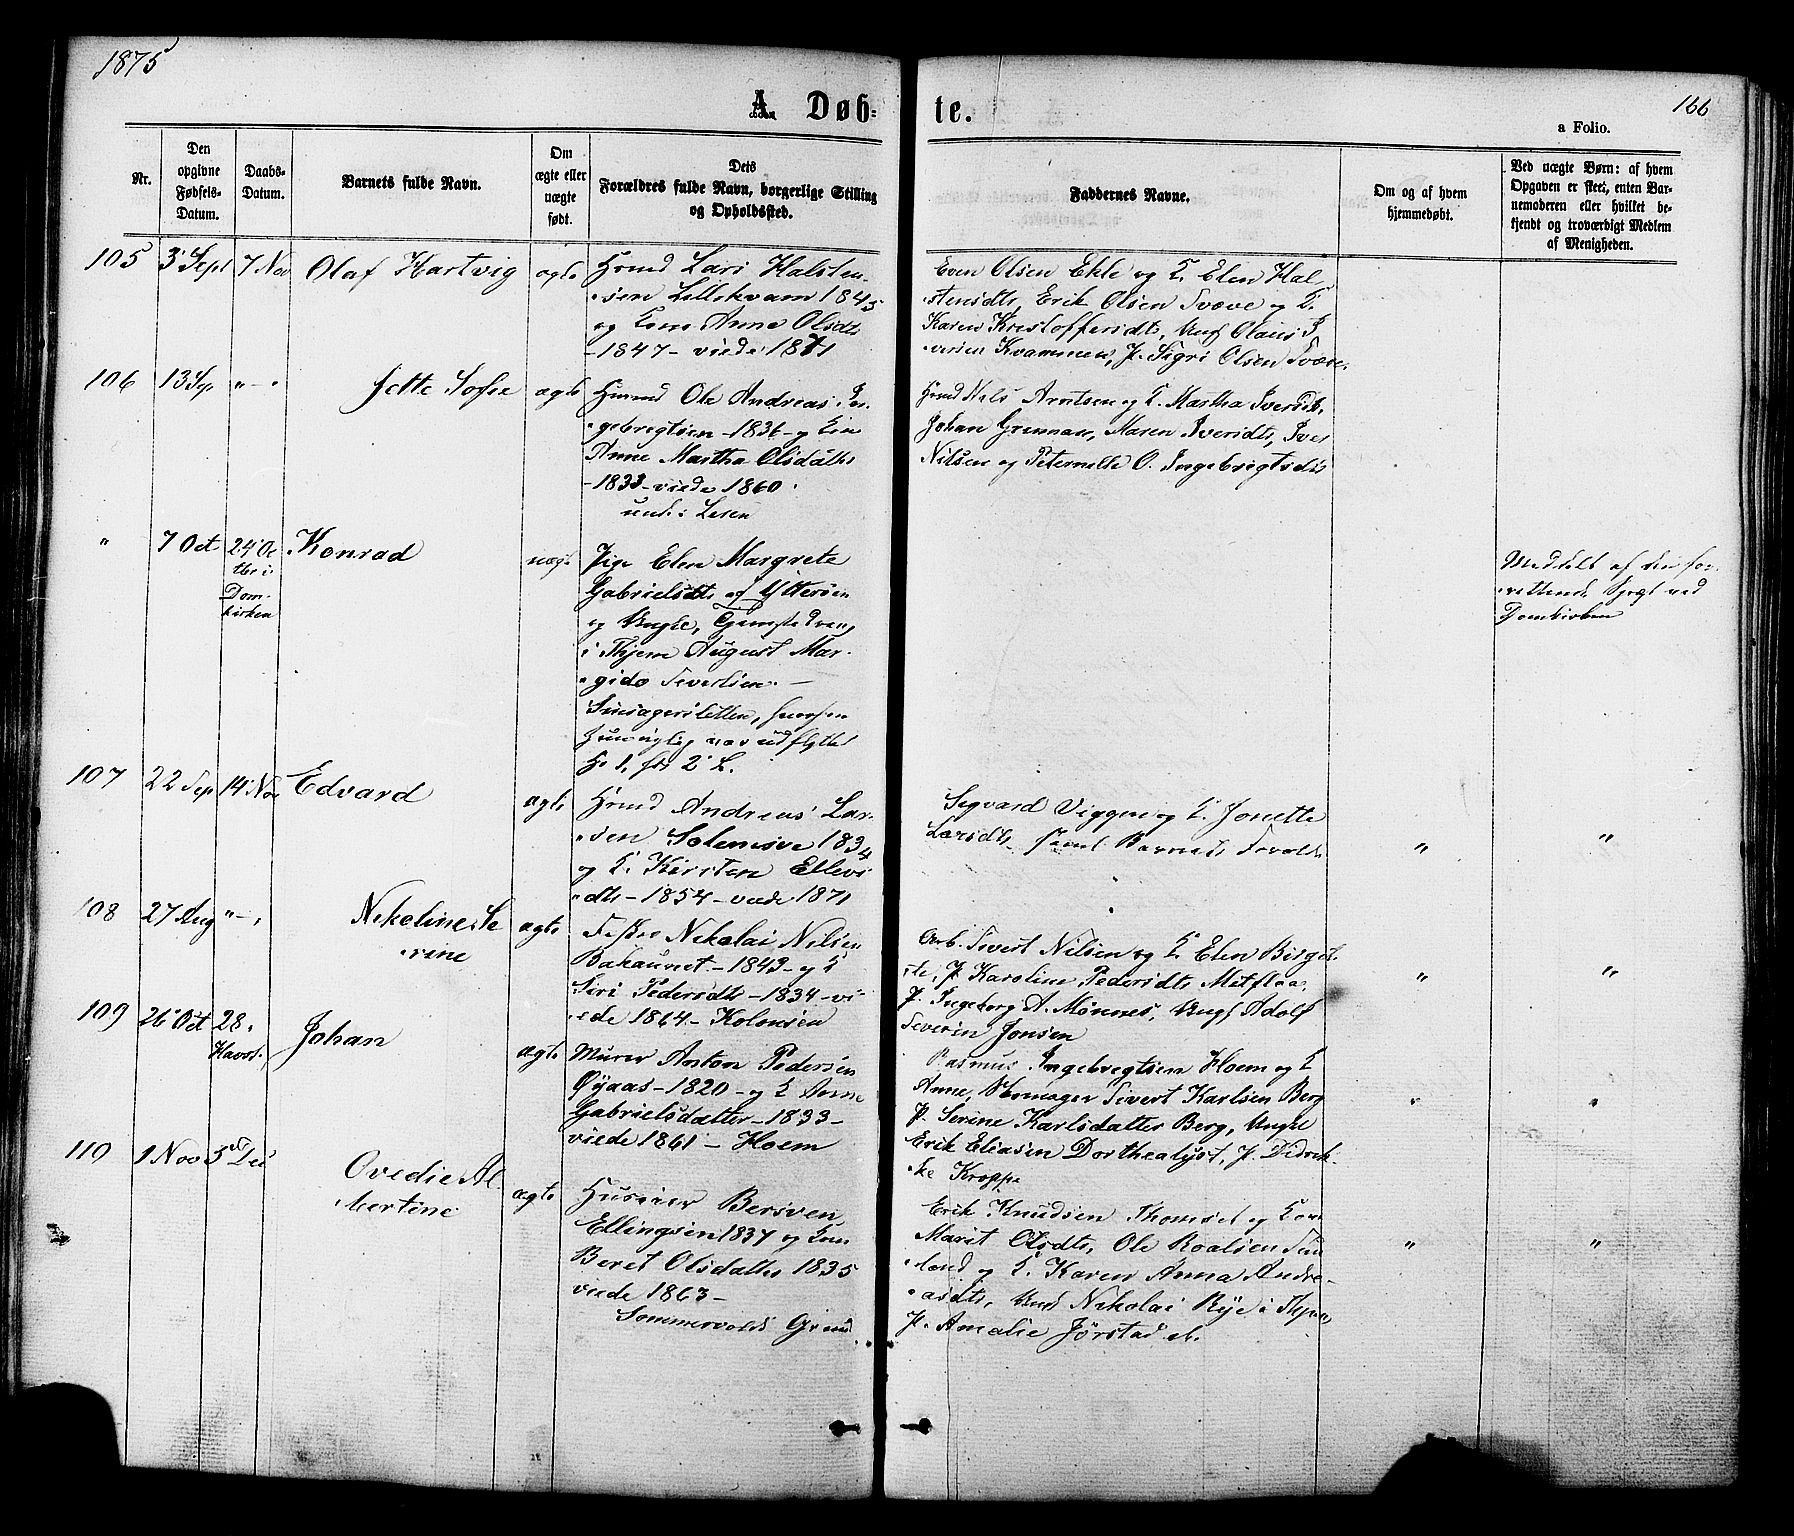 1875
A Døb-
te.
166
a Folio.
Nr.
Den
opgivne
Fødsels-
Datum.
Daabs-
Datum.
Barnets fulde Navn.
Om
ægte eller
uægte
født.
Dets
Forældres fulde Navn, borgerlige Stilling
og Opholdssted.
Faddernes Navne.
Om og af hvem
hjemmedøbt.
Ved uægte Børn: af hvem
Opgaven er skeet, enten Bar-
nemoderen eller hvilket be-
kjendt og troværdigt Medlem
af Menigheden.
105 3 Sept 7 Nov Olaf Hartvig ægte
Hmd Lars Halsten-
sen Lillekvam 1845
og Anne Olsdtr
-1847- viede 1871
Even Olsen Ekle og K. Elen Hal
stensdtr, Erik Olsen Tvæve og K.
Karen Kristoffersdtr, Ungk Olaus I
versen Kvammen, P. Sigri Olsen Tvæve
106 13 Sep "-" Jette Sofie ægte
Hmd Ole Andreas In-
gebregtsen -1836- og
Anne Martha Olsdatter
-1833- viede 1860
Leren
Hmd Nils Arntsen og K. Martha Iversdtr,
Johan Grennan, Maren Iversdtr, Iver
Nilsen og Peternelle O. Ingebrigtsdtr
" 7 Oct 24 Oc
Dom-
kirken
Konrad uægte
Pige Elen Margrete
Gabrielsdtr af Ytterøen
og Ungke, Tjenstedreng
i Thjem August Mar-
gido
1, 2 L.
Meddelt af den for-
rettende Præst ved
Domkirken
107 22 Sep 14 Nov Edvard ægte
Hmd Andreas Lar-
sen 1834
og K. Kirsten Ellevs
dtr - 1854 - viede 1871
Sigvard Viggen og K. Jonette
Larsdtr
" "
108 27 Aug "-" Nikoline Se
rine ægte
Nikolai Nilsen
Bakaunet - 1843 - og K
Siri Pedersdtr - 1834 - vi-
ede 1864 - Kolonien
Arb. Sivert Nilsen og K Elen Birgit
te, P. Karoline Pedersdtr
P. Ingeborg A. Monnes, Ungk Adolf
Severin Jonsen
" "
109 26 Oct 28
Johan ægte
Murer Anton Pedersen
Øyaas - 1820 - og K Anne
Gabrielsdatter - 1833 -
viede 1861 - Hoem
Rasmus Ingebregtsen Hoem og K
Anne, Skomager Sivert Karlsen Berg
P. Serine Karlsdatter Berg, Ungke
Erik Eliasen Dorthealyst, P. Didrik-
ke Kroppe
" "
110 1 Nov 5 Dec Ovedie Al
bertine ægte
Huseier Bersven
Ellingsen 1837 og Kone
Beret Olsdatter 1835
viede 1863 -
Sommervolds
Erik Knudsen Thomset og Kone
Marit Olsdtr, Ole Roalsen
land og K. Karen Anna Andre-
asdtr, Ungk Nikolai Rye i
P. Amalie Jørstad
" "